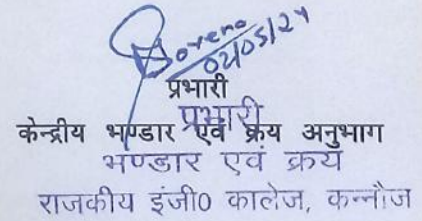 02/05/24
प्रभारी
प्रभारी
केन्द्रीय भण्डार एवं क्रय अनुभाग
भण्डार एवं क्रय
राजकीय इंजी० कालेज, कन्नौज